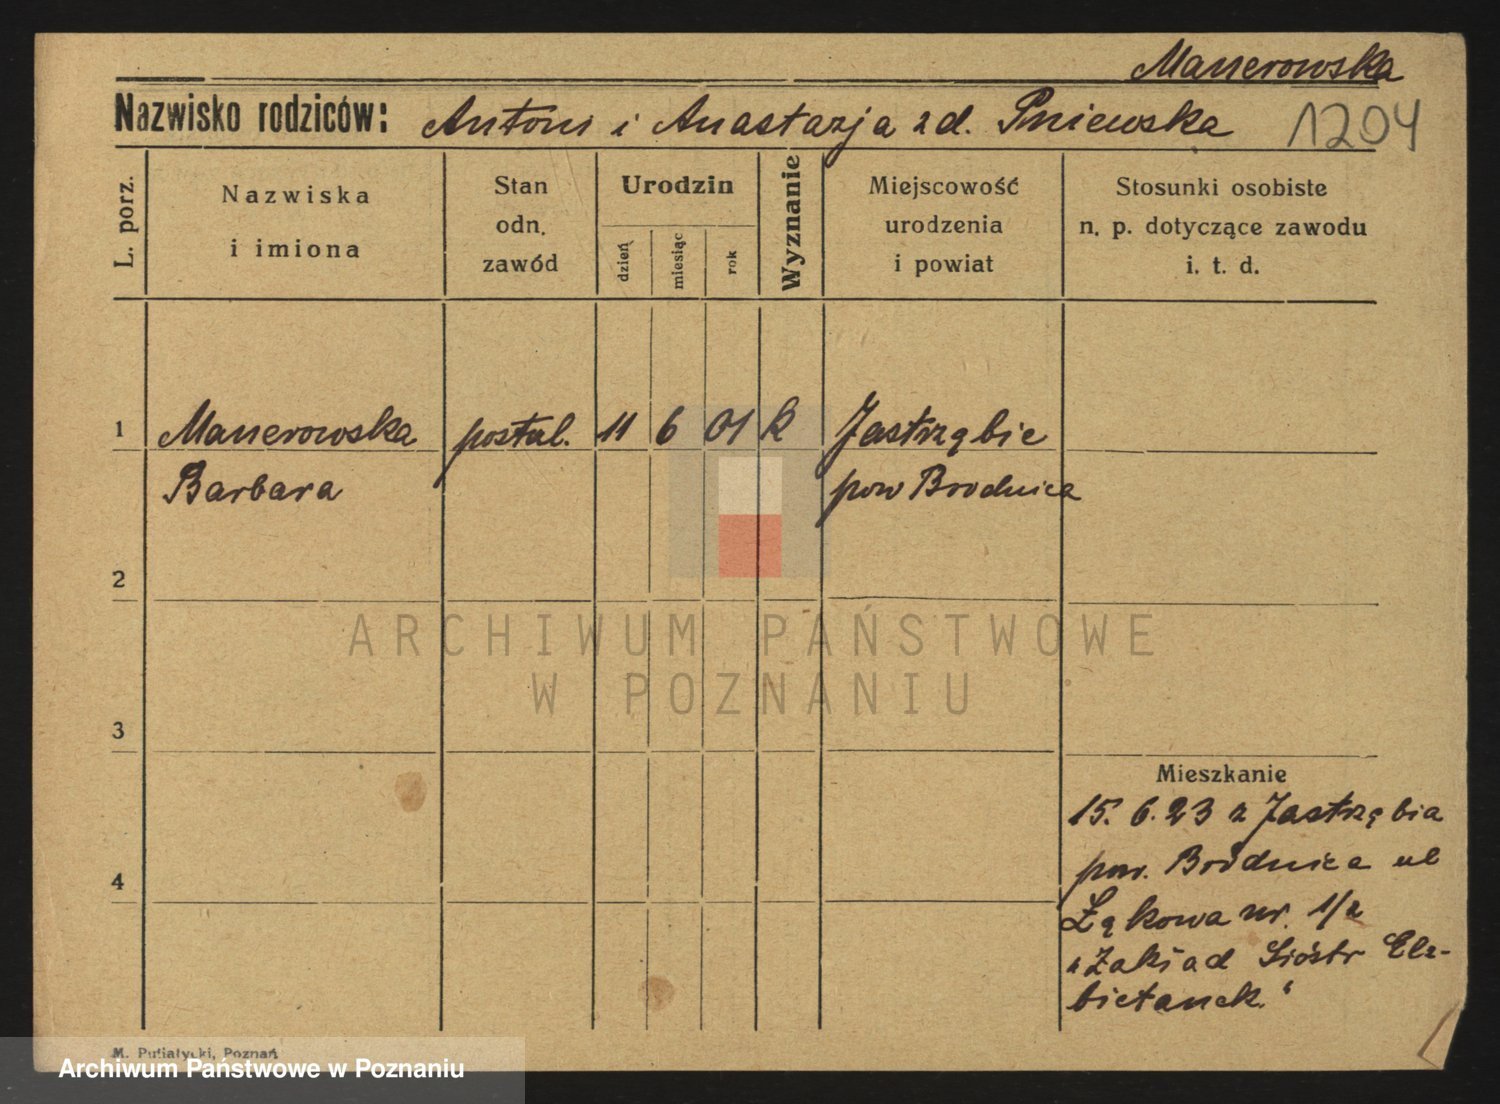 Manerowska
Nazwisko rodziców: Antoni i Anastazja z d. Pniewska 1204
L. porz.
Nazwiska
i imiona
Stan
odn.
zawód
Urodzin
dzień
miesiąc
rok
Wyznanie
Miejscowość
urodzenia
i powiat
Stosunki osobiste
n. p. dotyczące zawodu
i. t. d.
1 Manerowska postul. 11 6 01 k Jastrzębie
Barbara pow Brodnica
2
ARCHIWUM PAŃSTWOWE
W POZNANIU
3
Mieszkanie
15. 6. 23 z Jastrzębia
pow. Brodnica ul
4
Łąkowa nr. 1/2
„Zakład Sióstr Elż-
bietanek."
M. Putiatycki, Poznań
Archiwum Państwowe w Poznaniu